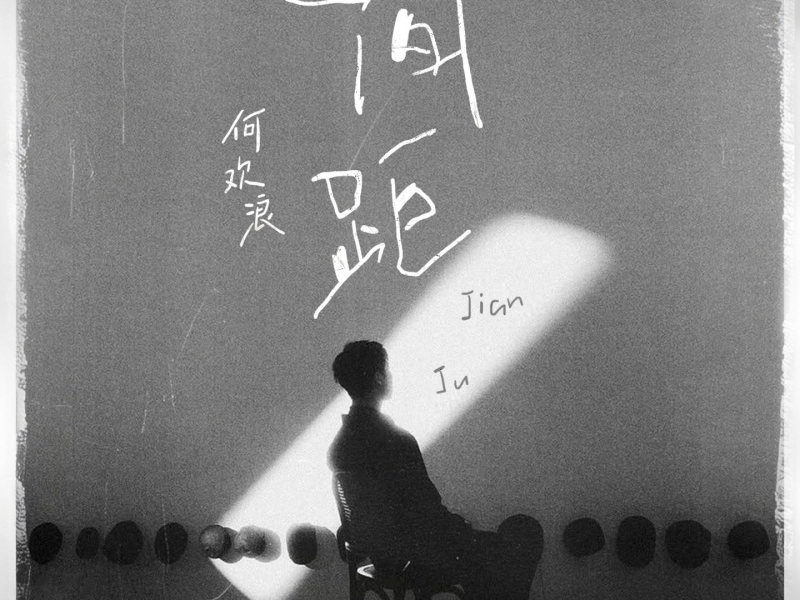 间
距
何欢浪
Jian
Ju